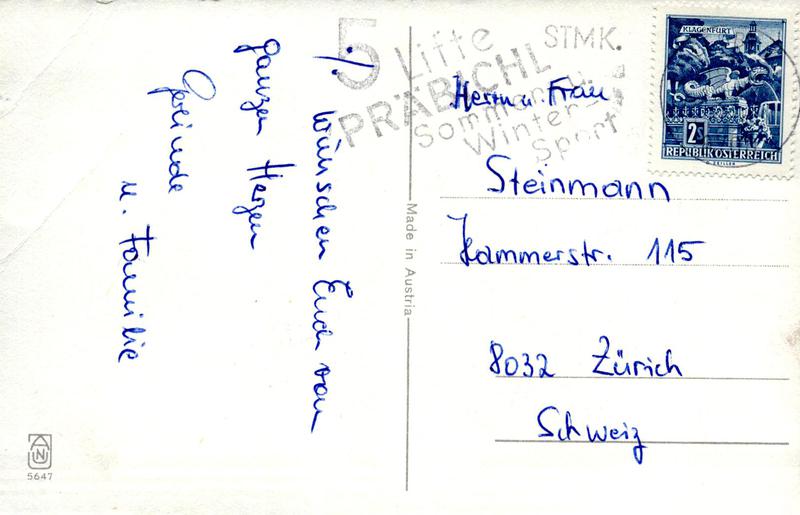 ./. wünschen Euch von
ganzen Herzen
Gerlinde
u. Familie
Made in Austria
5647
5 Lifte STMK.
PRÄBICHL
Sommer- u.
Winter-
Sport
KLAGENFURT
2S
REPUBLIK ÖSTERREICH
Herrn u. Frau
Steinmann
Kammerstr. 115
8032 Zürich
Schweiz